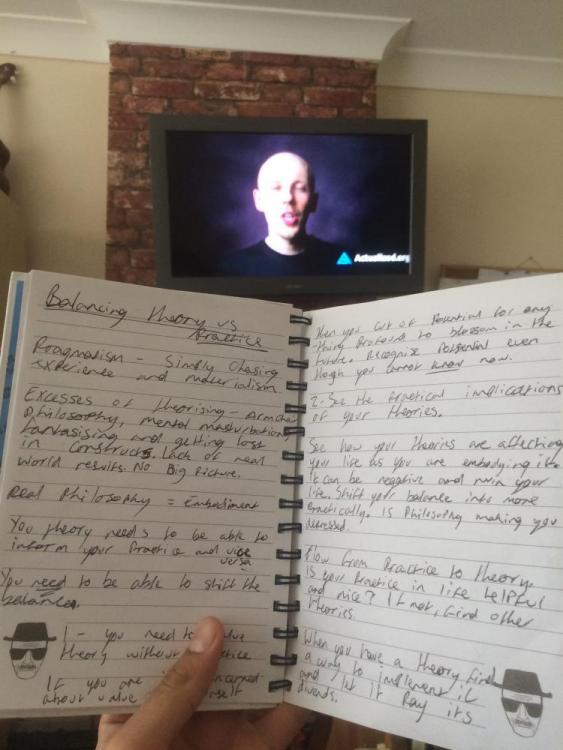 Actualized.org
Balancing theory vs
Practice
Pragmatism - Simply Chasing
experience and materialism
Excesses of theorising - Armchair
Philosophy, mental masturbation,
fantasising and getting lost
in constructs. Lack of real
world results. No Big Picture.
Real Philosophy = Embodiment
You theory needs to be able to
inform your Practice and vice
versa
You need to be able to shift the
balance.
1 - you need to value
theory without Practice
If you are
about value
then you cut of Potential for any
thing Profound to blossom in the
future. Recognise Potential even
though you cannot know now.
2 - See the Practical implications
of your theories.
See how your theories are affecting
your life as you are embodying it.
it can be negative and ruin your
life. Shift your balance into more
Practically. Is Philosophy making you
depressed.
Flow from Practice to theory
Is your Practice in life helpful
and nice? If not, find other
theories.
When you have a theory find
a way to implement it
and let it Pay its
divends.